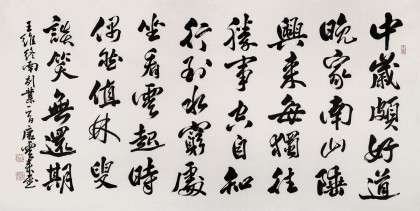 中歲頗好道
晚家南山陲
興來每獨往
勝事空自知
行到水窮處
坐看雲起時
偶然值林叟
談笑無還期
王維終南別業一首